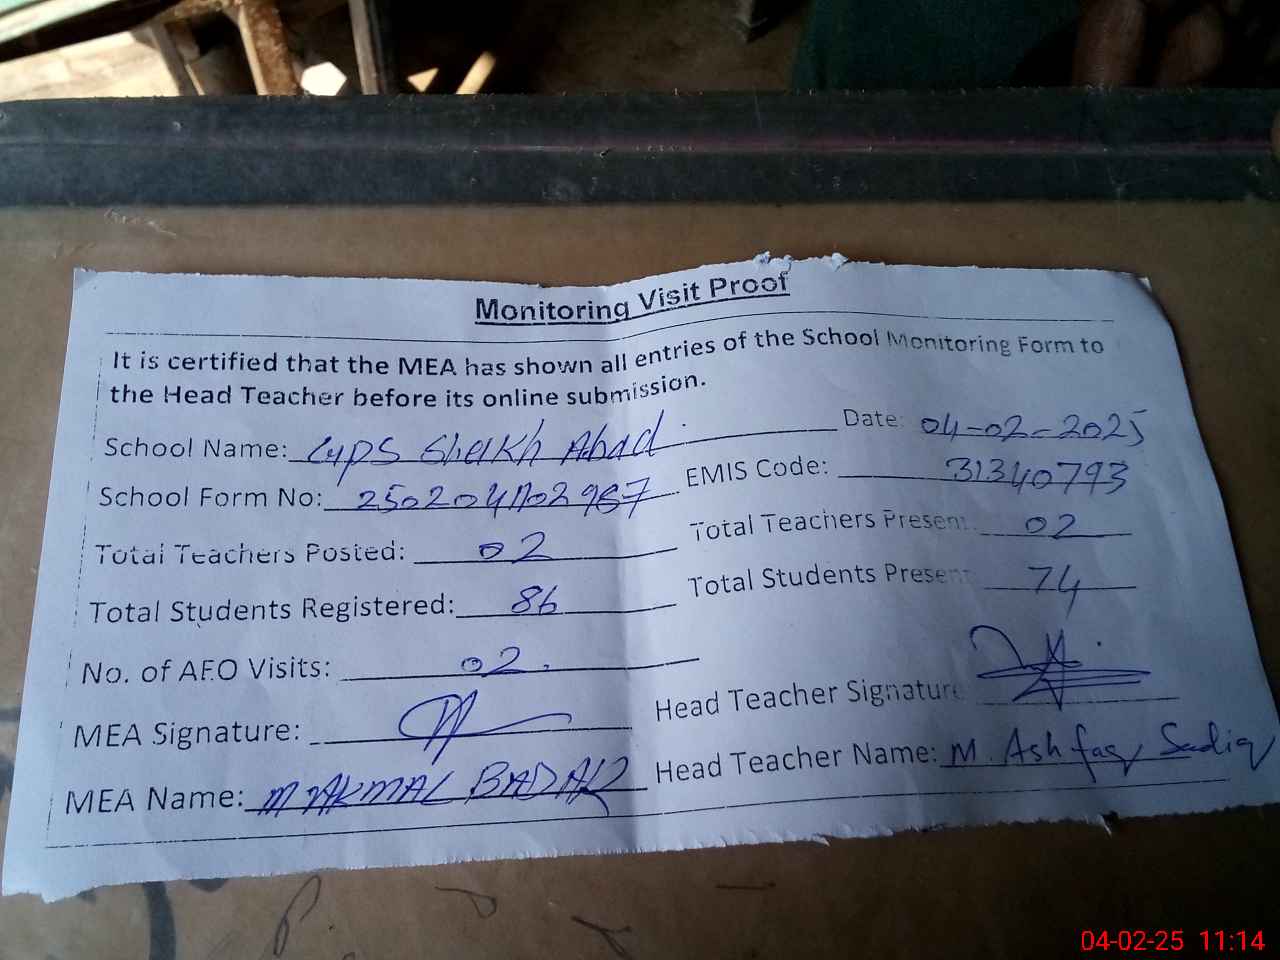 Monitoring Visit Proof
It is certified that the MEA has shown all entries of the School Monitoring Form to
the Head Teacher before its online submission.
School Name: GPS Sheikh Abad Date: 04-02-2025
School Form No: EMIS Code: 31340793
Total Teachers Posted: 02 Total Teachers Present: 02
Total Students Registered: 86 Total Students Present: 74
No. of AEO Visits: 02
MEA Signature: Head Teacher Signature
MEA Name: M AKMAL Head Teacher Name: M. Ashfaq Sadiq
04-02-25 11:14